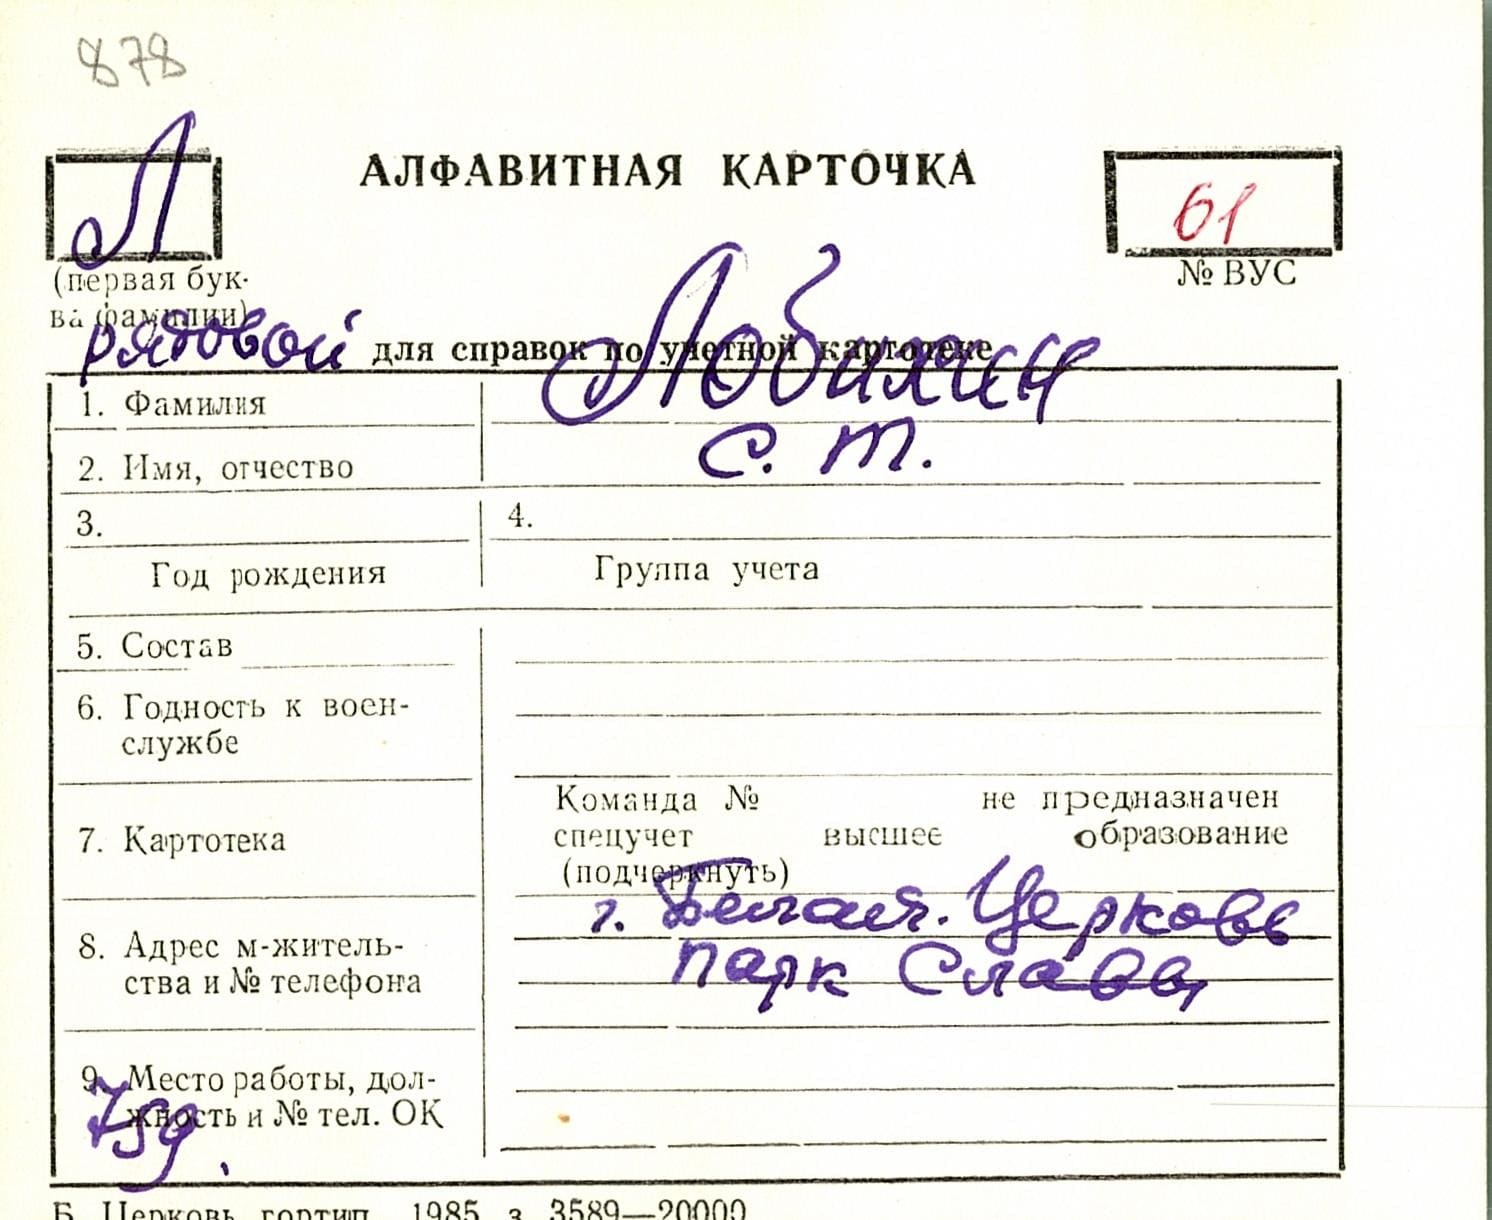 878
Л
АЛФАВИТНАЯ КАРТОЧКА
61
(первая бук-
ва фамилии)
№ ВУС
рядовой
для справок по учетной картотеке
1. Фамилия
Лобихин
2. Имя, отчество
С. Т.
3.
4.
Год рождения
Группа учета
5. Состав
6. Годность к воен-
службе
7. Картотека
Команда № не предназначен
спецучет высшее образование
(подчеркнуть)
8. Адрес м-житель-
ства и № телефона
г. Белая. Церковь
парк Славы
9. Место работы, дол-
жность и № тел. ОК
759.
Б. Церковь, гортип. 1985 з. 3589—20000